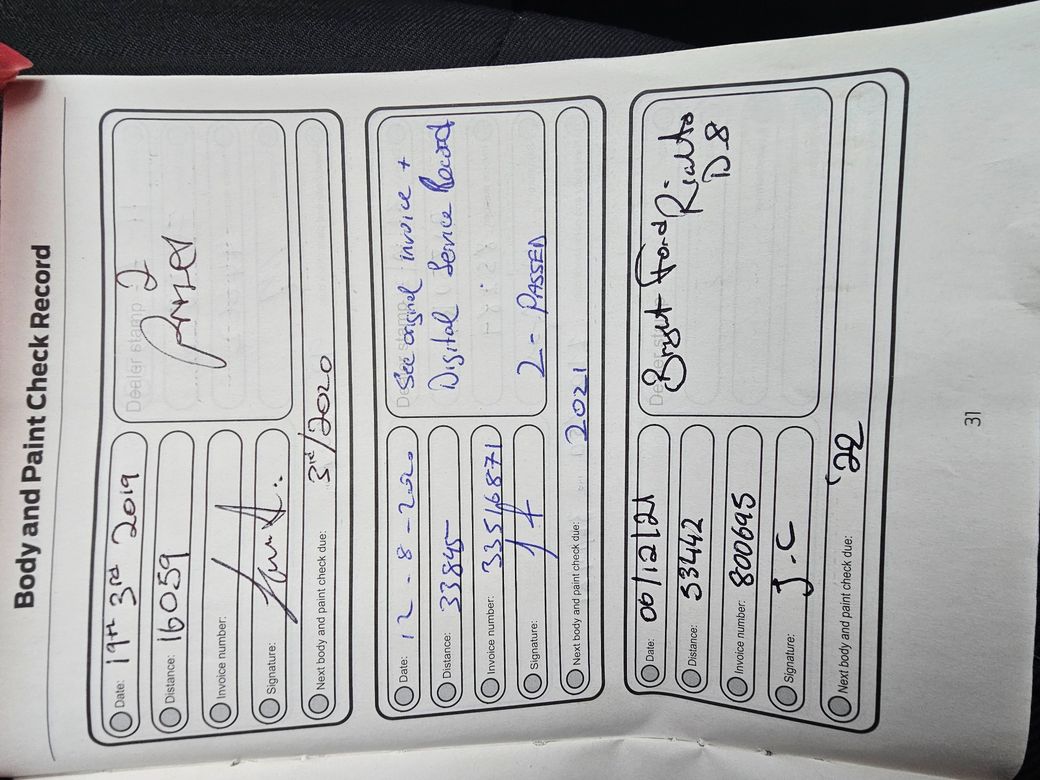 Body and Paint Check Record
Date: 19th 3rd 2019
Distance: 16059
Invoice number:
Signature:
Next body and paint check due: 3rd/2020
Dealer stamp
2
Date: 12-8-2020
Distance: 33845
Invoice number: 33516871
Signature:
Next body and paint check due: 2021
See original invoice +
Digital Service Record
2 - PASSED
Date: 06/12/21
Distance: 53442
Invoice number: 800695
Signature: J.C
Next body and paint check due: '22
Bright Ford Rialto
D.8
31